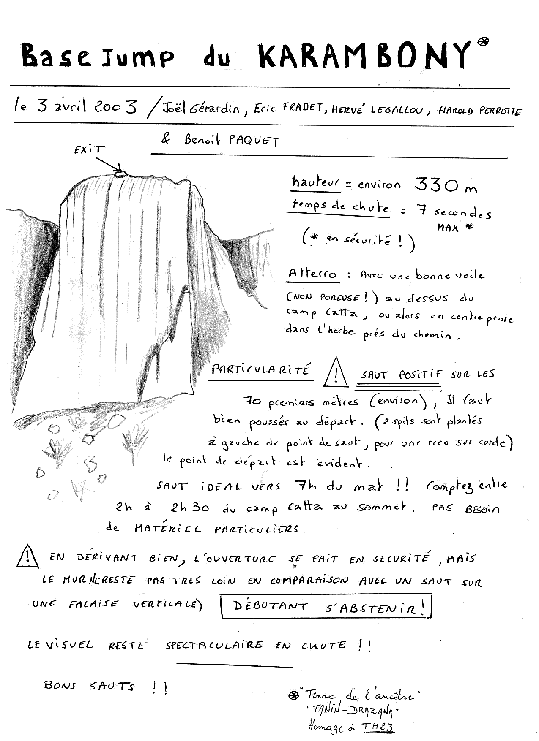 Base Jump du KARAMBONY*
le 3 avril 2003 / Joël Gérardin, Eric FRADET, HERVÉ LEGALLOU, HAROLD PERROTTE
& Benoit PAQUET
EXIT
hauteur = environ 330 m
temps de chute = 7 secondes
MAX *
(* en sécurité !)
Atterro : Avec une bonne voile
(NON POREUSE !) au dessus du
camp Catta, ou alors en contre pente
dans l'herbe près du chemin.
PARTICULARITÉ ! SAUT POSITIF SUR LES
70 premiers mètres (environ), Il faut
bien poussés au départ. (2 spits sont plantés
à gauche du point de saut, pour une reco sur corde)
le point de départ est évident.
SAUT IDEAL VERS 7h du mat !! Comptez entre
2h à 2h30 du camp Catta au sommet. PAS BESOIN
de MATÉRIEL PARTICULIERS
! EN DÉRIVANT BIEN, L'OUVERTURE SE FAIT EN SECURITÉ, MAIS
LE MUR RESTE PAS TRES LOIN EN COMPARAISON AVEC UN SAUT SUR
UNE FALAISE VERTICALE) DÉBUTANT S'ABSTENIR !
LE VISUEL RESTE SPECTACULAIRE EN CHUTE !!
BONS SAUTS !!
* "Terre de l'ancêtre"
Homage à